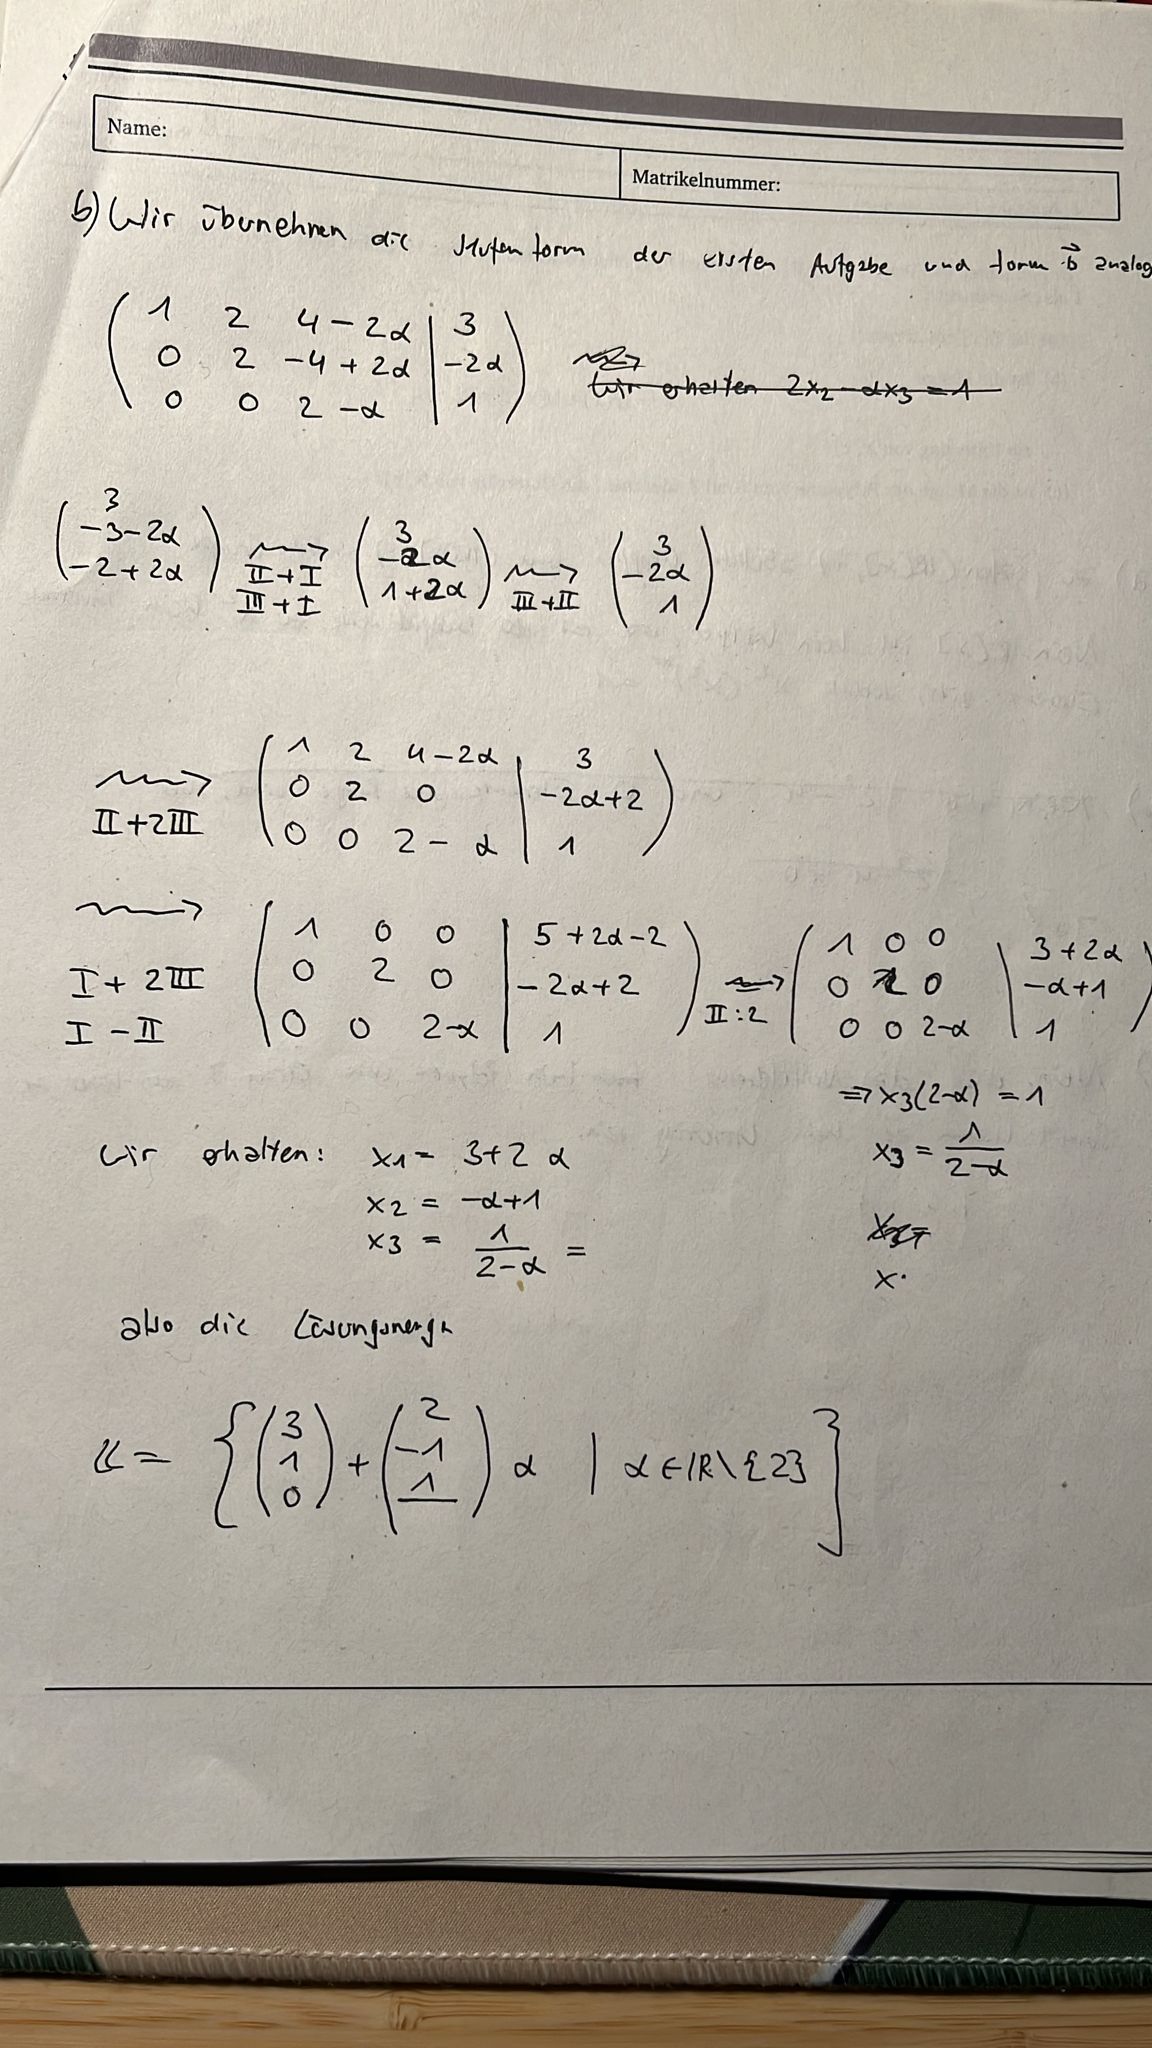 Name:
Matrikelnummer:
b) Wir übernehmen die Stufenform der ersten Aufgabe und form b⃗ analog
( 1 2 4-2α | 3 )
( 0 2 -4+2α | -2α )
( 0 0 2-α | 1 )
Wir erhalten 2x₂ - αx₃ = 1
( 3 ) ( 3 ) ( 3 )
( -3-2α ) ⇝ II+I ( -2α ) ⇝ III+II ( -2α )
( -2+2α ) III+I ( 1+2α ) ( 1 )
⇝ ( 1 2 4-2α | 3 )
II+2III ( 0 2 0 | -2α+2 )
( 0 0 2-α | 1 )
⇝ ( 1 0 0 | 5+2α-2 ) ( 1 0 0 | 3+2α )
I+2III ( 0 2 0 | -2α+2 ) ⇝ II:2 ( 0 1 0 | -α+1 )
I-II ( 0 0 2-α | 1 ) ( 0 0 2-α | 1 )
⇒ x₃(2-α) = 1
x₃ = 1/(2-α)
x
wir erhalten: x₁ = 3+2α
x₂ = -α+1
x₃ = 1/(2-α) =
also die Lösungsmenge
𝕃 = { (3 1 0) + (2 -1 1) α | α∈ℝ\{2} }